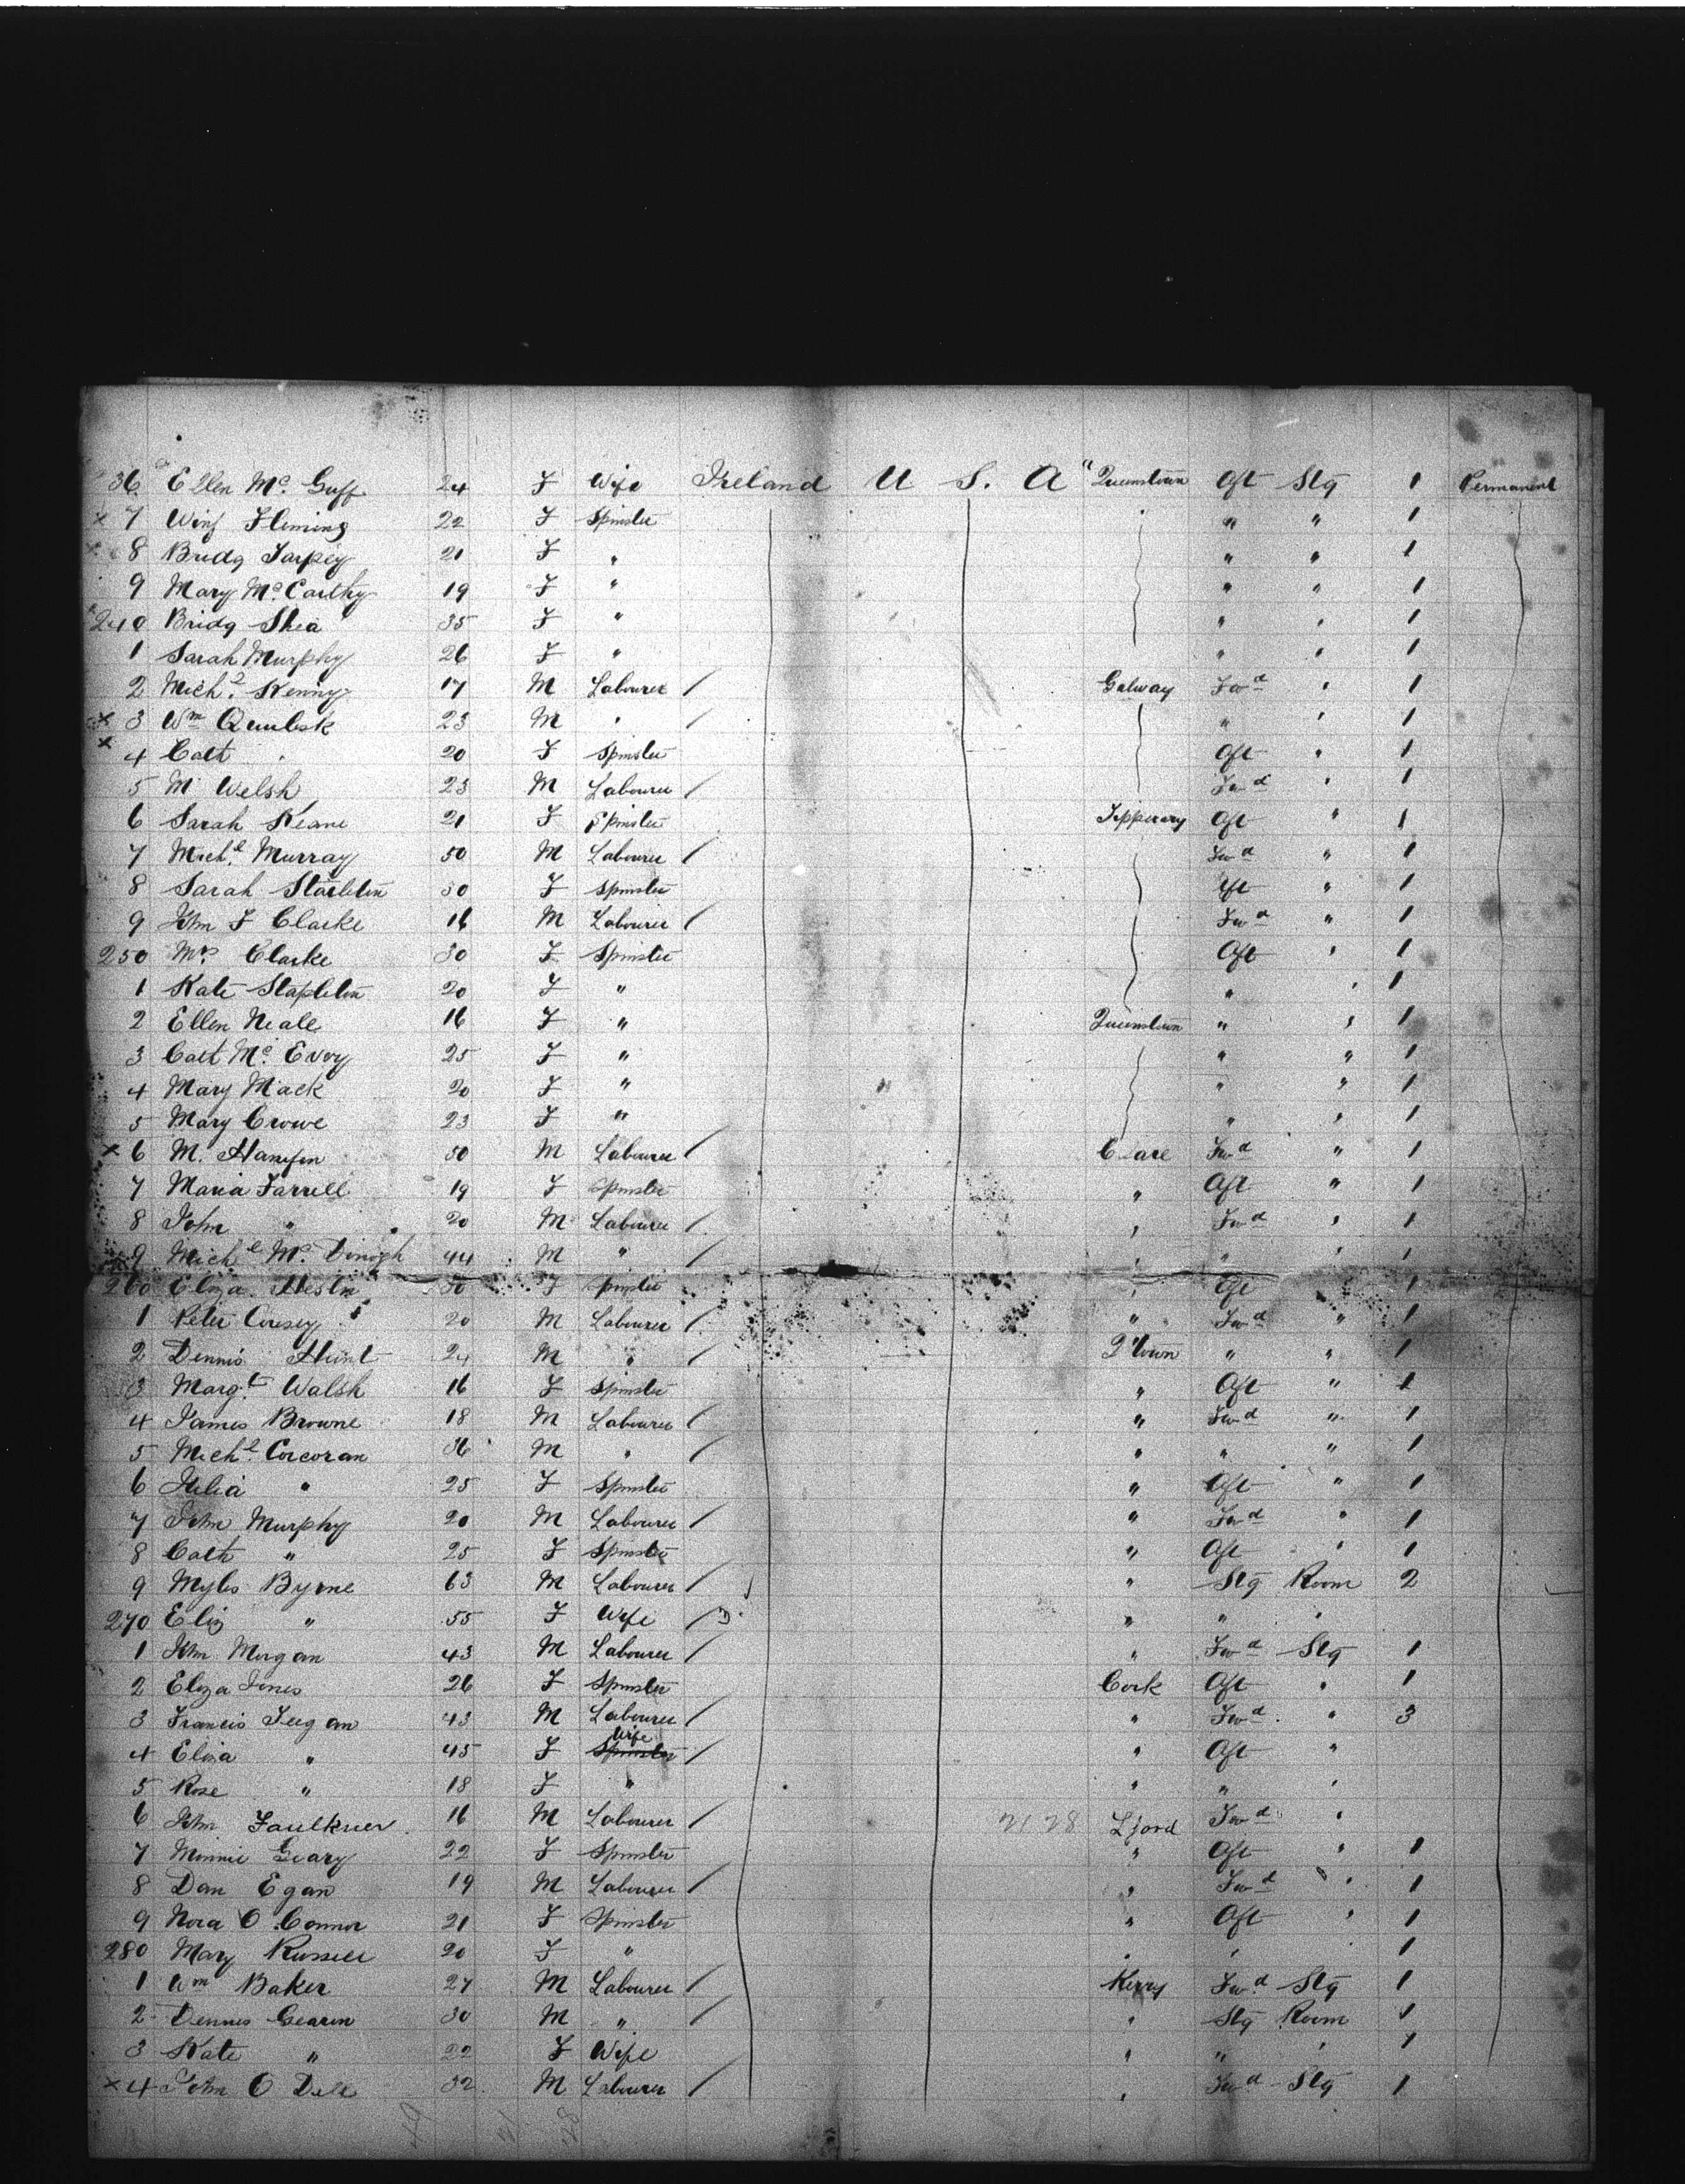 36 Ellen Mc. Guff 24 F Wife Ireland U S. A " Queenstown Aft Stg 1 Permanent
x 7 Winf Fleming 22 F Spinster " " 1
8 Bridg Tarpey 21 F " " " 1
9 Mary Mc. Carthy 19 F " " " 1
240 Bridg Shea 35 F " " " 1
1 Sarah Murphy 26 F " " " 1
2 Michl. Kenny 17 M Labourer / Galway Fwd " 1
x 3 Wm 23 M " / " " 1
x 4 Cath " 20 F Spinster Aft " 1
5 M Welsh 23 M Labourer / Fwd " 1
6 Sarah Keane 21 F Spinster Tipperary Aft " 1
7 Michl. Murray 50 M Labourer / Fwd " 1
8 Sarah Stapleton 30 F Spinster Aft " 1
9 John F Clarke 16 M Labourer / Fwd " 1
250 Mrs Clarke 30 F Spinster Aft " 1
1 Kate Stapleton 20 F " " " 1
2 Ellen Neale 16 F " Queenstown " " 1
3 Cath Mc. Evoy 25 F " " " 1
4 Mary Mack 20 F " " " 1
5 Mary Crowe 23 F " " " 1
x 6 M. Hanifin 50 M Labourer / Clare Fwd " 1
7 Maria Farrell 19 F Spinster " Aft " 1
8 John " 20 M Labourer / " Fwd " 1
9 Michl Mc. Donogh 44 M " / " " " 1
260 Eliza Heslin 30 F Spinster " Aft " 1
1 Peter 20 M Labourer / " Fwd " 1
2 Dennis Hunt 24 M " / Q'town " " 1
3 Margt. Walsh 16 F Spinster " Aft " 1
4 James Browne 18 M Labourer / " Fwd " 1
5 Michl. Corcoran 36 M " / " " " 1
6 Julia " 25 F Spinster " Aft " 1
7 John Murphy 20 M Labourer / " Fwd " 1
8 Cath " 25 F Spinster " Aft " 1
9 Myles Byrne 63 M Labourer / " Stg Room 2
270 Eliz " 55 F Wife / " " "
1 John Morgan 43 M Labourer / " Fwd Stg 1
2 Eliza Jones 26 F Spinster Cork Aft " 1
3 Francis Teegan 43 M Labourer / " Fwd " 3
4 Eliza " 45 F Spinster Wife / " Aft "
5 Rose " 18 F " " " "
6 John Faulkner 16 M Labourer / 21 28 L'ford Fwd "
7 Minnie Geary 22 F Spinster " Aft " 1
8 Dan Egan 19 M Labourer / " Fwd " 1
9 Nora O Connor 21 F Spinster " Aft " 1
280 Mary Russell 20 F " " " 1
1 Wm Baker 27 M Labourer / Kerry Fwd Stg 1
2 Dennis Gearin 30 M " / " Stg Room 1
3 Kate " 22 F Wife " " " 1
x 4 John O Dell 32 M Labourer / " Fwd Stg 1
49 21 28